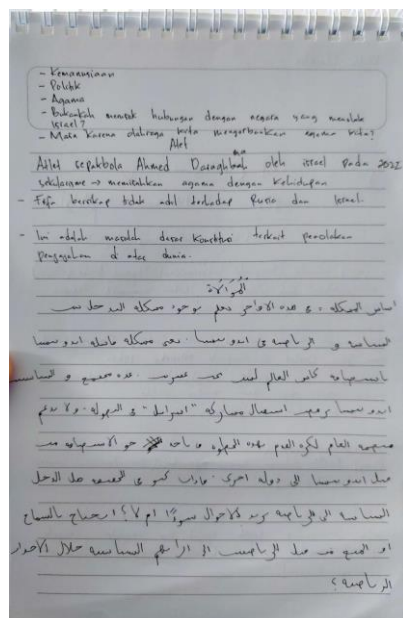 - Kemanusiaan
- Politik
- Agama
- Bukankah menolak hubungan dengan negara yang menolak israel?
- Masa karena olahraga kita mengorbankan agama kita?
Atlet
Atlet sepakbola Ahmed Daraghmah oleh israel pada 2022
sekularisme → memisahkan agama dengan kehidupan
- Fifa bersikap tidak adil terhadap Rusia dan Israel.
- Ini adalah masalah dasar konstitusi terkait penolakan
penjajahan di atas dunia.
أساس المشكلة، في هذه الأواخر نعلم بوجود مشكلة التدخل بين
السياسة و الرياضة في اندونيسيا. نعم مشكلة فاشلة اندونيسيا
باستضافة كأس العالم تحت عشرين. عدة مجتمع و السياسة
اندونيسيا يرفض استقبال مشاركة "اسرائيل" في البطولة. ولا يدعم
لكرة القدم بهذه الخطوة حق الاستضافة من
قبل اندونيسيا الى دولة اخرى. في الحقيقة هل الدخل
السياسة الى الرياضة يزيد الأحوال سوءًا ام لا؟ احتياج بالسماح
او المنع من قبل الرياضيين الى السياسية خلال الأحداث
الرياضية؟